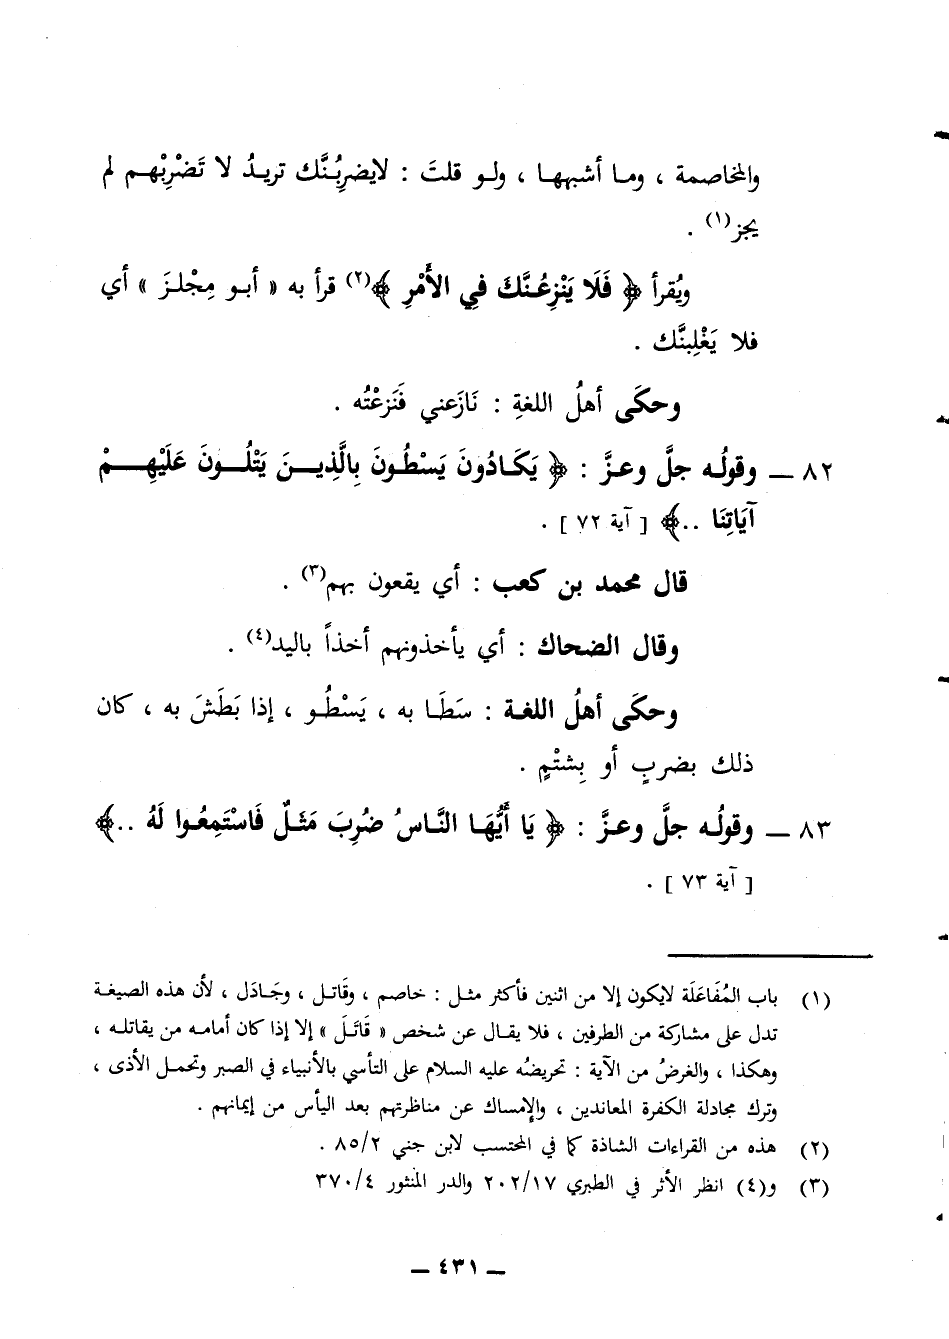 والمخاصمة ، وما أشبهها ، ولو قلتَ : لايضرِبُنَّك تريدُ لا تَضْرِبْهم لم
يجز(١) .
ويُقرأ ﴿ فَلَا يَنْزِعُنَّكَ فِي الأَمْرِ ﴾(٢) قرأ به « أبو مِجْلزَ » أي
فلا يَغْلِبنَّك .
وحكَى أهلُ اللغةِ : نَازَعني فَنَزعْتُه .
٨٢ ــ وقولُه جلَّ وعزَّ : ﴿ يَكَادُونَ يَسْطُونَ بِالَّذِينَ يَتْلُونَ عَلَيْهِمْ
آيَاتِنَا ..﴾ [ آية ٧٢ ] .
قال محمد بن كعب : أي يقعون بهم(٣) .
وقال الضحاك : أي يأخذونهم أخذاً باليد(٤) .
وحكَى أهلُ اللغة : سَطَا به ، يَسْطُو ، إذا بَطَشَ به ، كان
ذلك بضربٍ أو بِشتْمٍ .
٨٣ ــ وقولُه جلَّ وعزَّ : ﴿ يَا أَيُّهَا النَّاسُ ضُرِبَ مَثَلٌ فَاسْتَمِعُوا لَهُ ..﴾
[ آية ٧٣ ] .
(١) باب المُفَاعَلَة لايكون إلا من اثنين فأكثر مثل : خاصم ، وقَاتل ، وجَادَل ، لأن هذه الصيغة
تدل على مشاركة من الطرفين ، فلا يقال عن شخص « قَاتَلَ » إلا إذا كان أمامه من يقاتله ،
وهكذا ، والغرضُ من الآية : تحريضُه عليه السلام على التأسي بالأنبياء في الصبر وتحمل الأذى ،
وترك مجادلة الكفرة المعاندين ، والإمساك عن مناظرتهم بعد اليأس من إيمانهم .
(٢) هذه من القراءات الشاذة كما في المحتسب لابن جني ٨٥/٢ .
(٣) و(٤) انظر الأثر في الطبري ٢٠٢/١٧ والدر المنثور ٣٧٠/٤
ــ ٤٣١ ــ